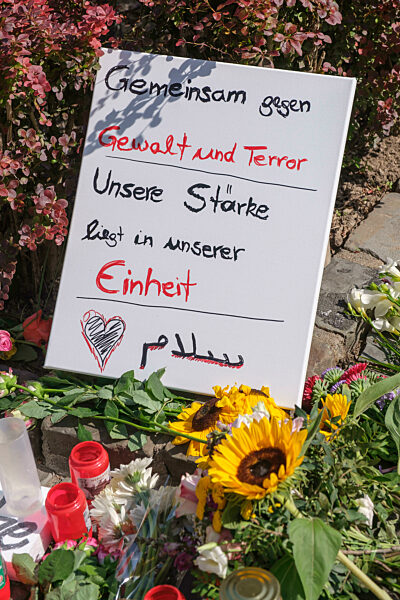 Gemeinsam gegen
Gewalt und Terror
Unsere Stärke
liegt in unserer
Einheit
سلام